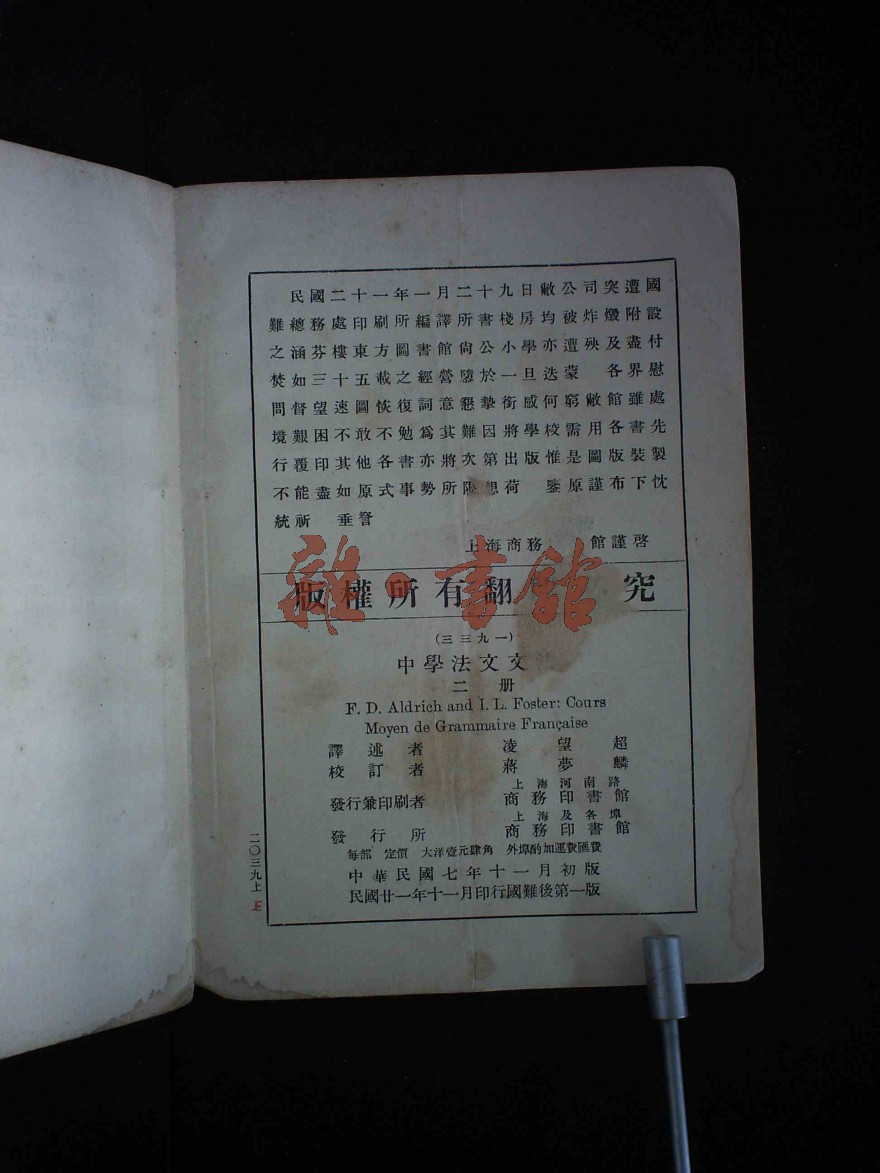 民國二十一年一月二十九日敝公司突遭國
難總務處印刷所編譯所書棧房均被炸燬附設
之涵芬樓東方圖書館尙公小學亦遭殃及盡付
焚如三十五載之經營隳於一旦迭蒙 各界慰
問督望速圖恢復詞意懇摯銜感何窮敝館雖處
境艱困不敢不勉爲其難因將學校需用各書先
行覆印其他各書亦將次第出版惟是圖版裝製
不能盡如原式事勢所限想荷 鑒原謹布下忱
統祈 垂詧
上海商務 館謹啓
版權所有翻 究
雜·書館
(三三九一)
中學法文文
二册
F. D. Aldrich and I. L. Foster: Cours
Moyen de Grammaire Française
譯述者 凌望超
校訂者 蔣夢麟
上海河南路
發行兼印刷者 商務印書館
上海及各埠
發行所 商務印書館
每部 定價 大洋壹元肆角 外埠酌加運費匯費
中華民國七年十一月初版
民國廿一年十一月印行國難後第一版
二〇三九上